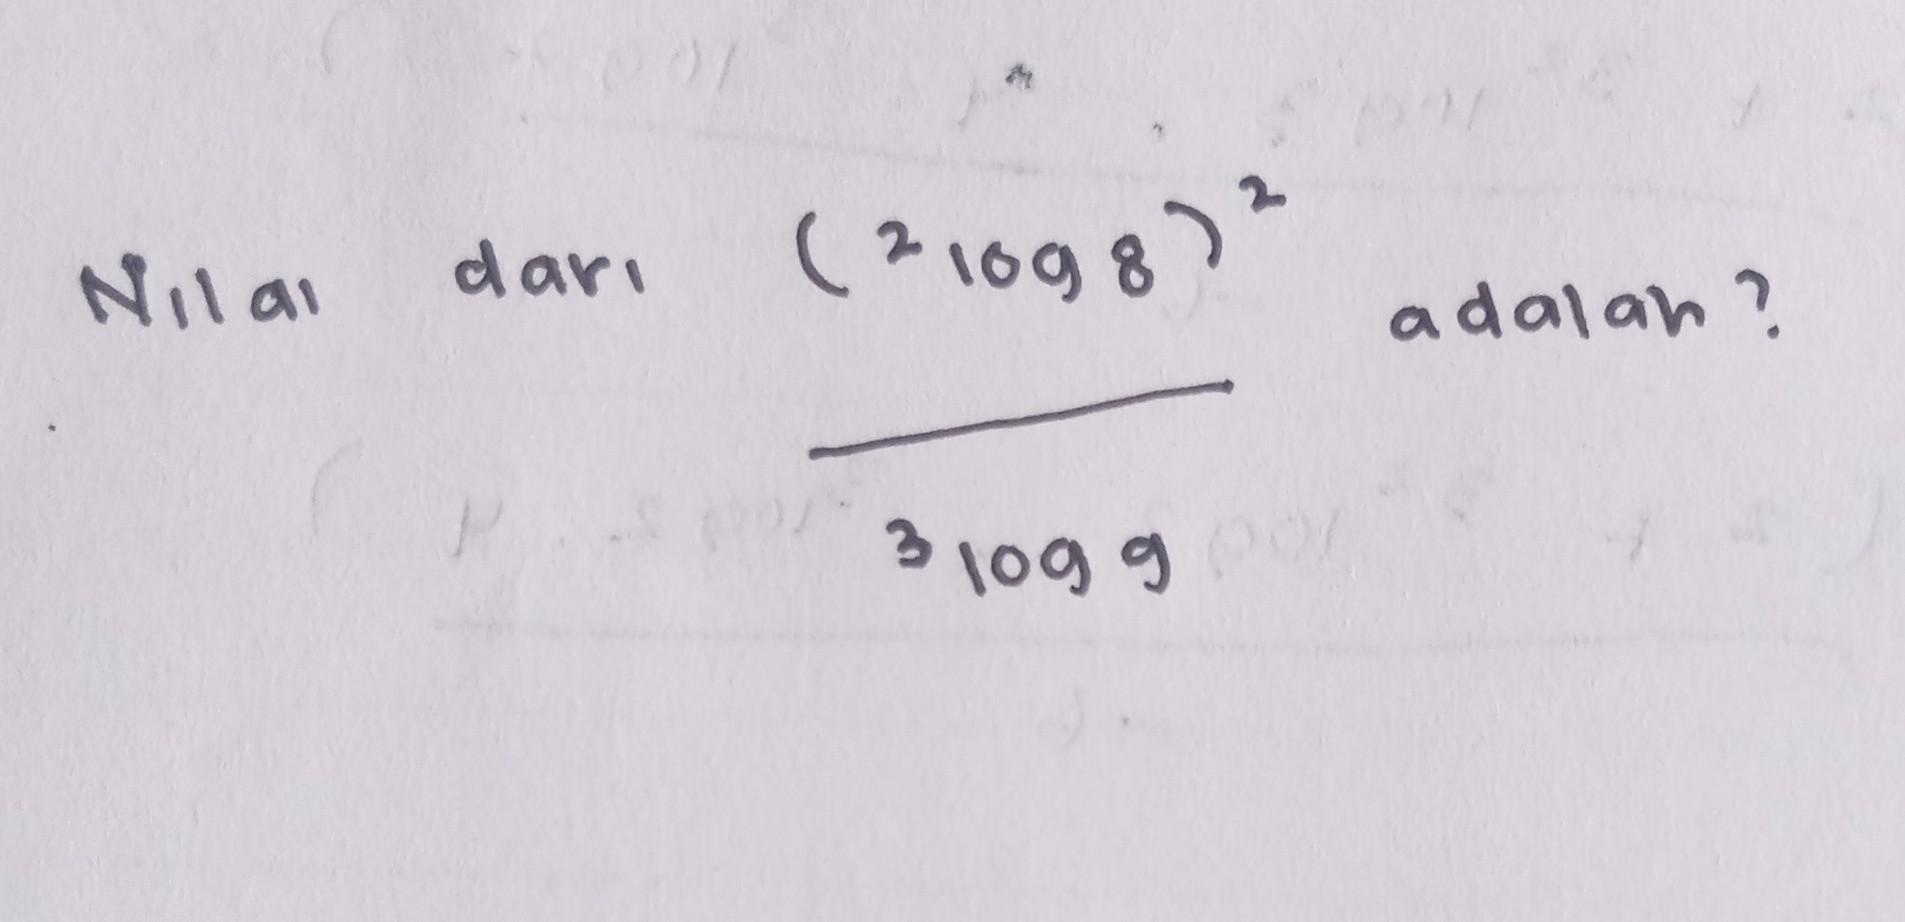 Nilai dari (² log 8)² adalah?
³ log 9